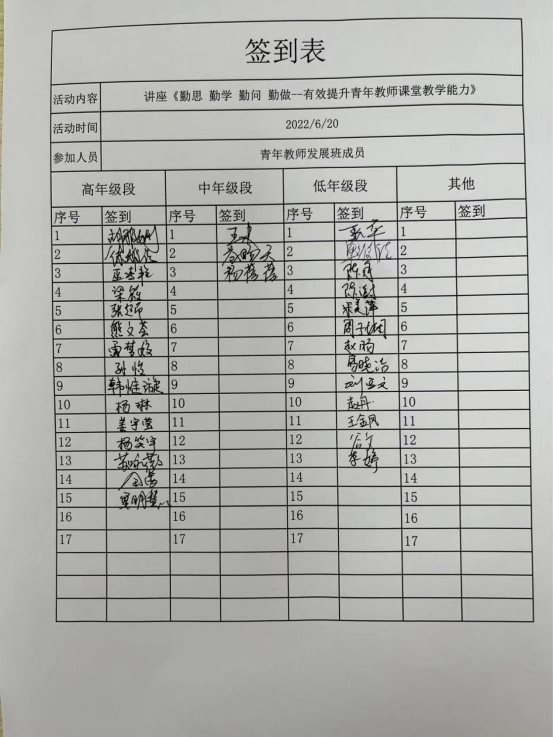 签到表
活动内容 讲座《勤思 勤学 勤问 勤做--有效提升青年教师课堂教学能力》
活动时间 2022/6/20
参加人员 青年教师发展班成员
高年级段 中年级段 低年级段 其他
序号 签到 序号 签到 序号 签到 序号 签到
1 1 1 1
2 2 2 2
3 3 杨蓓蓓 3 3
4 梁毅 4 4 4
5 5 5 5
6 熊文荟 6 6 周子 6
7 雷梦姣 7 7 赵丽 7
8 孙悦 8 8 易晓洁 8
9 韩继漩 9 9 刘亚文 9
10 杨琳 10 10 赵丹 10
11 姜宇莹 11 11 王金凤 11
12 杨笑宇 12 12 谷文 12
13 13 13 李婷 13
14 14 14 14
15 15 15 15
16 16 16 16
17 17 17 17